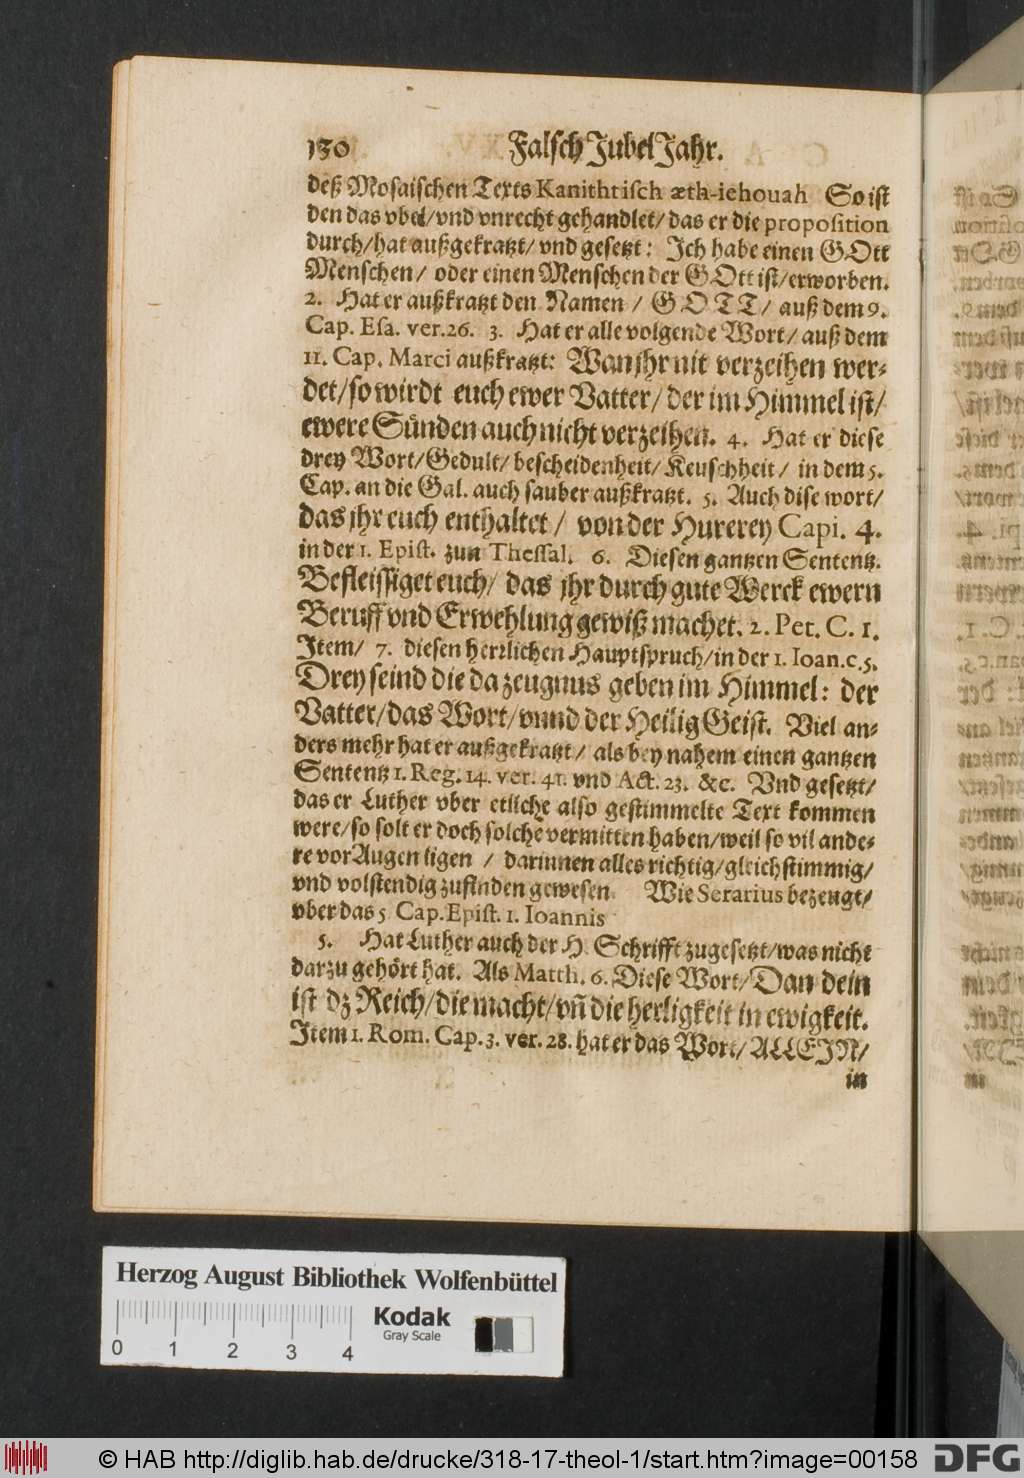 130 Falsch Jubel Jahr.
deß Mosaischen Texts Kanithtisch æth-iehouah So ist
den das vbel/vnd vnrecht gehandlet/das er die proposition
durch/hat außgekratzt/vnd gesetzt: Jch habe einen GOtt
Menschen/ oder einen Menschen der GOtt ist/erworben.
2. Hat er außkratzt den Namen / GOTT/ auß dem 9.
Cap. Esa. ver.26. 3. Hat er alle volgende Wort/ auß dem
11. Cap. Marci außkratzt: Wan jhr nit verzeihen wer-
det/so wirdt euch ewer Vatter/ der im Himmel ist/
ewere Sünden auch nicht verzeihen. 4. Hat er diese
drey Wort/Gedult/bescheidenheit/Keuschheit/ in dem 5.
Cap. an die Gal. auch sauber außkratzt. 5. Auch dise wort/
das jhr euch enthaltet/ von der Hurerey Capi. 4.
in der 1. Epist. zun Thessal. 6. Diesen gantzen Sententz.
Befleissiget euch/ das jhr durch gute Werck ewern
Beruff vnd Erwehlung gewiß machet. 2. Pet. C. 1.
Jtem/ 7. diesen herrlichen Hauptspruch/in der 1. Ioan.c.5.
Drey seind die da zeugnus geben im Himmel: der
Vatter/das Wort/vnnd der Heilig Geist. Viel an-
ders mehr hat er außgekratzt/ als bey nahem einen gantzen
Sententz 1. Reg. 14. ver. 41. vnd Act. 23. &c. Vnd gesetzt/
das er Luther vber etliche also gestimmelte Text kommen
were/so solt er doch solche vermitten haben/weil so vil ande-
re vor Augen ligen / darinnen alles richtig/gleichstimmig/
vnd volstendig zufinden gewesen Wie Serarius bezeugt/
vber das 5 Cap.Epist. 1. Ioannis
5. Hat Luther auch der H. Schrifft zugesetzt/was nicht
darzu gehört hat. Als Matth. 6. Diese Wort/Dan dein
ist dz Reich/die macht/vñ die herligkeit in ewigkeit.
Jtem 1. Rom. Cap. 3. ver. 28. hat er das Wort/ALLEJN/
in
Herzog August Bibliothek Wolfenbüttel
Kodak
Gray Scale
0 1 2 3 4
© HAB http://diglib.hab.de/drucke/318-17-theol-1/start.htm?image=00158
DFG